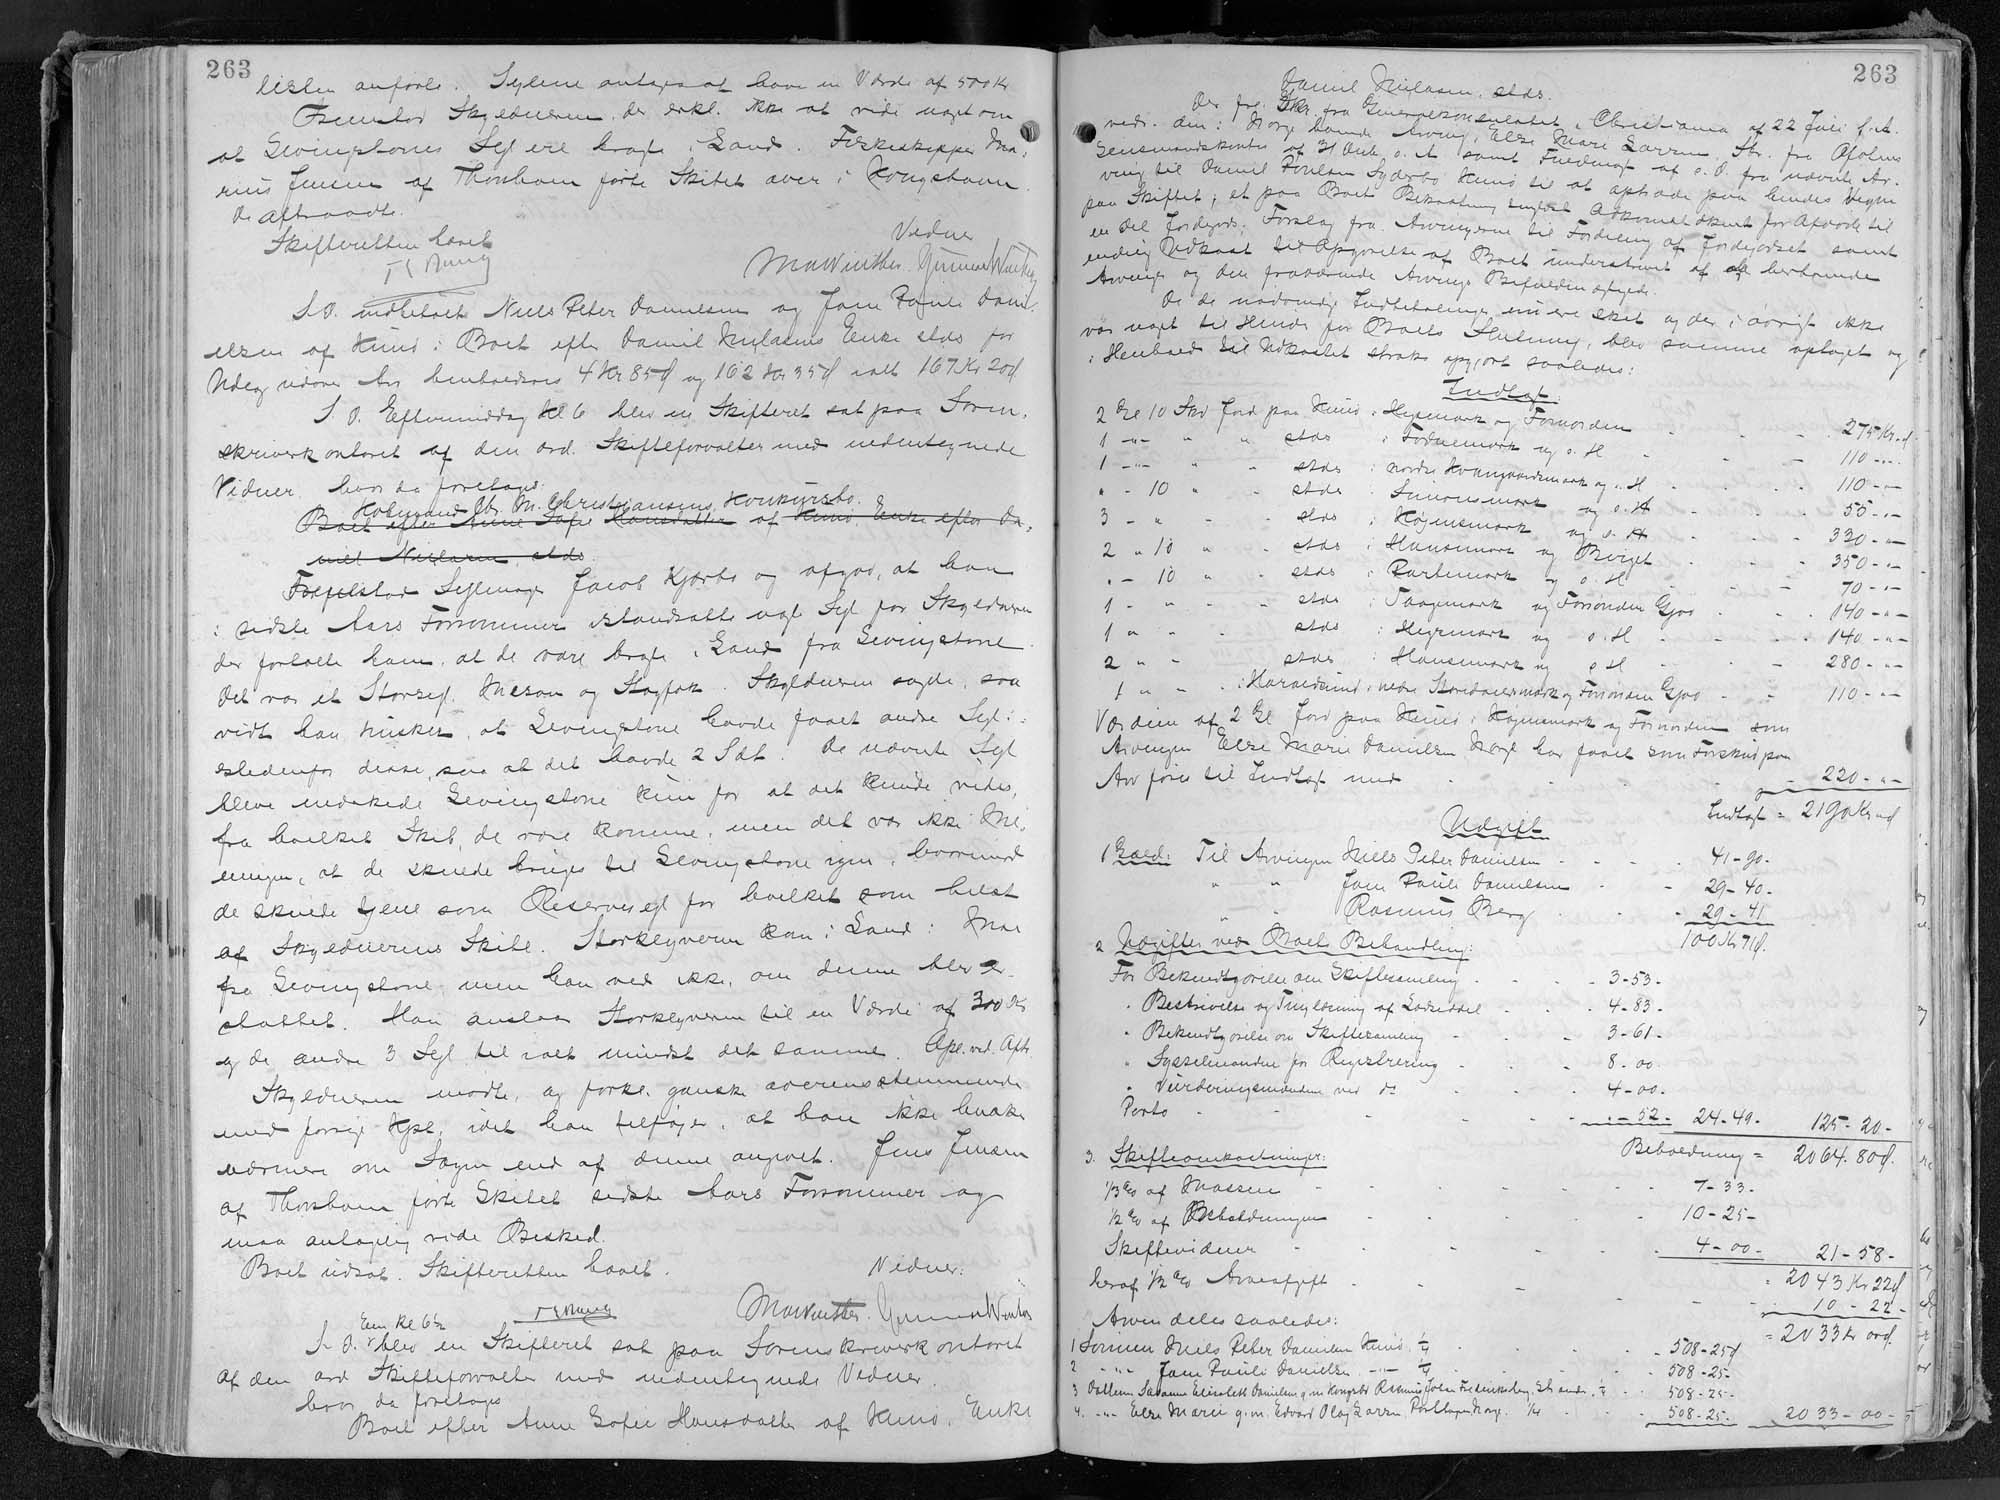 263
listen anførte. Sejlene antages at have en Værdi af 500 Kr
Fremstod Skyldneren, der erkl. ikke at vide noget om
at Livingstones Sejl ere bragt i Land. Fiskeskipper Ma-
rius Jensen af Thorshavn førte Skibet over i Kongshavn.
De aftraadte.
Skifteretten hævet
Vidner
S.D. indbetalt Niels Peter Danielsen og Jann Pauli Dani-
elsen af Hunø i Boet efter Daniel Nielsens Enke stds for
Udlæg udover Arv henholdsvis 4 Kr 85 Ø og 162 Kr 35 Ø ialt 167 Kr 20 Ø
S.D. Eftermiddag Kl 6 blev en Skifteret sat paa Soren-
skriverkontoret af den ord. Skifteforvalter med undertegnede
Vidner hvor da foretoges:
Chr. M. Christiansens Konkursbo.
Boet efter Anne Sofie Hansdatter af Hunø, Enke efter Da-
niel Nielsen, stds
Sejlmager Jacob Kjærbo og afgav, at han
i sidste Aars Forsommer istandsatte nogle Sejl for Skyldneren
der fortalte ham, at de vare bragt i Land fra Livingstone
Det var et Storsejl, Mesan og Stagfok. Skyldneren sagde, saa
vidt han husker, at Livingstone havde faaet andre Sejl i-
stedenfor disse, saa at det havde 2 Sæt. De nævnte Sejl
bleve mærkede Livingstone kun for at det kunde vides,
fra hvilket Skib de vare komne, men det var ikke Me-
ningen, at de skulde bringes til Livingstone igen, hvorimod
de skulde tjene som Reservesejl for hvilket som helst
af Skyldnerens Skibe. Storklyveren kom i Land i Maj
fra Livingstone, men han ved ikke, om denne blev er-
stattet. Han anslaar Storklyveren til en Værdi af 300 Kr
og de andre 3 Sejl til ialt mindst det samme. Opl. ved. Aftr.
Skyldneren mødte, og forkl. ganske overensstemmende
med forrige Kpt, idet han tilføjer, at han ikke husker
nærmere om Sagen end af denne angivet. Jens Jensen
af Thorshavn førte Skibet sidste Aars Forsommer og
maa antagelig vide Besked.
Boet udsat. Skifteretten hævet.
Vidner:
Em Kl 6½
S.D. blev en Skifteret sat paa Sorenskriverkontoret
af den ord Skifteforvalter med undertegnede Vidner
hvor da foretoges
Boet efter Anne Sofie Hansdatter af Hunø, Enke
263
Daniel Nielsen, stds.
Der frl. Skr. fra Generalkonsulatet i Christiania af 22 Juni f.A.
vedr. den i Norge boende Arving, Else Marie Larsen, Skr. fra
af 31 s. A samt Fuldmagt af s. D. fra nævnte Ar-
ving til Daniel Poulsen Hunø til at optræde paa hendes Vegne
paa Skiftet; et paa Boets Bekostning tinglæst Adkomstdokument for Afdøde til
en Del Jordegods; Forslag fra Arvingerne til Fordeling af Jordegodset samt
endelig Udkast til Opgørelse af Boet underskrevet af de herboende
Arvinger og den fraværende Arvings Befuldmægtigede.
Da de nødvendige Indbetalinger nu ere sket og der i øvrigt ikke
var noget til Hinder for Boets Slutning, blev samme optaget og
i Henhold til Udkastet straks opgjort saaledes:
Indtægt:
2 Gl 10 Skd Jord paa Hunø i Hejsmark og Fornorden - - - 275 Kr - Ø
1 - " - " " stds i og s. H - - 110 - " -
1 - " - " - stds i nordre og s. H - - - 110 - " -
" - 10 " - stds i Simonsmark og s. H - - - 55 - " -
3 - " " - stds i Højensmark og s. H - - - 330 - " -
2 " 10 " - stds i Hansemark og - - - 350 - " -
" - 10 " - stds i og s. H - - - 70 - " -
1 - " " - stds i og Fornorden Gjov - - 140 - " -
1 " " - stds i Hejsmark og s. H - - - 140 - " -
2 " " - stds i Hansemark og s H - - - 280 - " -
1 " " - i Haraldsund i nedre og Fornorden Gjov - - 110 - " -
Værdien af 2 Gl Jord paa Hunø i Højensmark og Fornorden som
Arvingen Else Marie Danielsen Norge har faaet som Forskud paa
Arv føres til Indtægt med - - - - 220 - " -
Indtægt = 2190 Kr " Ø
Udgift
1 Gæld: Til Arvingen Niels Peter Danielsen - - - 41 - 90 -
" " Jann Pauli Danielsen - - 29 - 40 -
" " Rasmus Berg - - - 29 - 41
100 Kr 71 Ø.
2 Udgifter ved Boets Behandling:
For Bekendtgørelse om Skiftesamling - - - 3 - 53 -
" Beskrivelse og Tinglæsning af Lodseddel - - - 4 - 83 -
" Bekendtgørelse om Skiftesamling - - - 3 - 61 -
" Sysselmanden for Registrering - - - 8 - 00 -
" Vurderingsmændene ved do - - - 4 - 00 -
Porto - - - - - 52 - 24 - 49 - 125 - 20 -
Beholdning = 2064 - 80 Ø.
3. Skifteomkostninger:
1/3 % af Massen - - - - 7 - 33 -
1/2 % af Beholdningen - - - - 10 - 25 -
Skiftevidner - - - - 4 - 00 - 21 - 58 -
= 2043 Kr 22 Ø
heraf 1/2 % Arveafgift - - - - 10 - 22 -
= 2033 Kr 00 Ø.
Arven deles saaledes:
1 Sønnen Niels Peter Danielsen Hunø, ¼ - - - 508 - 25 Ø
2 - " - Jann Pauli Danielsen - " - ¼ - - 508 - 25 -
3 Datteren Susanne Elisabeth Danielsen g.m. Rasmus ¼ - - 508 - 25 -
4. - " - Else Marie g.m. Edvard Olaj Larsen, Norge ¼ - - 508 - 25 - 2033 - 00 -